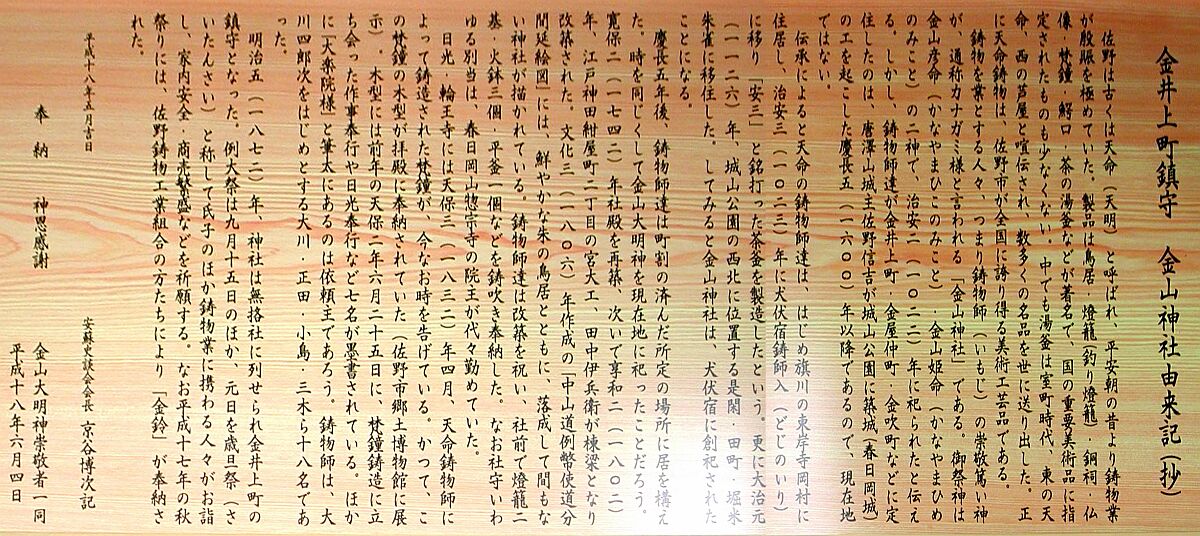 金井上町鎮守　金山神社由来記(抄)
佐野は古くは天命(天明)と呼ばれ、平安朝の昔より鋳物業
が殷賑を極めていた。製品は鳥居・燈籠(釣り燈籠)・銅祠・仏
像・梵鐘・鰐口・茶の湯釜などが著名で、国の重要美術品に指
定されたものも少なくない・中でも湯釜は室町時代、東の天
命、西の芦屋と喧伝され、数多くの名品を世に送り出した。正
に天命鋳物は、佐野市が全国に誇り得る美術工芸品である。
鋳物を業とする人々、つまり鋳物師(いもじ)の崇敬篤い神
が、通称カナガミ様と言われる「金山神社」である。御祭神は
金山彦命(かなやまひこのみこと)・金山姫命(かなやまひめ
のみこと)の二神で、治安二(一〇二二)年に祀られたと伝え
る。しかし、鋳物師達が金井上町・金屋仲町・金吹町などに定
住したのは、唐澤山城主佐野信吉が城山公園に築城(春日岡城)
の工を起こした慶長五(一六〇〇)年以降であるので、現在地
ではない。
伝承によると天命の鋳物師達は、はじめ旗川の東岸寺岡村に
住居し、治安三(一〇二三)年に犬伏宿鋳師入(どじのいり)
に移り「安三」と銘打った茶釜を製造したという。更に大治元
(一一二六)年、城山公園の西北に位置する是閑・田町・堀米
朱雀に移住した。してみると金山神社は、犬伏宿に創祀された
ことになる。
慶長五年後、鋳物師達は町割の済んだ所定の場所に居を構え
た。時を同じくして金山大明神を現在地に祀ったことだろう。
寛保二(一七四二)年社殿を再築、次いで享和二(一八〇二)
年、江戸神田紺屋町二丁目の宮大工、田中伊兵衛が棟梁となり
改築された。文化三(一八〇六)年作成の「中山道例幣使道分
間延絵図」には、鮮やかな朱の鳥居とともに、落成して間もな
い神社が描かれている。鋳物師達は改築を祝い、社前で燈籠二
基・火鉢三個・平釜一個などを鋳吹き奉納した。なお社守いわ
ゆる別当は、春日岡山惣宗寺の院王が代々勤めていた。
日光・輪王寺には天保三(一八三二)年四月、天命鋳物師に
よって鋳造された梵鐘が、今なお時を告げている。かつて、こ
の梵鐘の木型が拝殿に奉納されていた(佐野市郷土博物館に展
示)。木型には前年の天保二年六月二十五日に、梵鐘鋳造に立
ち会った作事奉行や日光奉行など七名が墨書されている。ほか
に「大楽院様」と筆太にあるのは依頼主であろう。鋳物師は、大
川四郎次をはじめとする大川・正田・小島・三木ら十八名であ
った。
明治五(一八七二)年、神社は無格社に列せられ金井上町の
鎮守となった。例大祭は九月十五日のほか、元日を歳旦祭(さ
いたんさい)と称して氏子のほか鋳物業に携わる人々がお詣
し、家内安全・商売繁盛などを祈願する。なお平成十七年の秋
祭りには、佐野鋳物工業組合の方たちにより「金鈴」が奉納さ
れた。
平成十八年五月吉日
安蘇史談会会長　京谷博次記
奉納　神恩感謝
金山大明神崇敬者一同
平成十八年六月四日